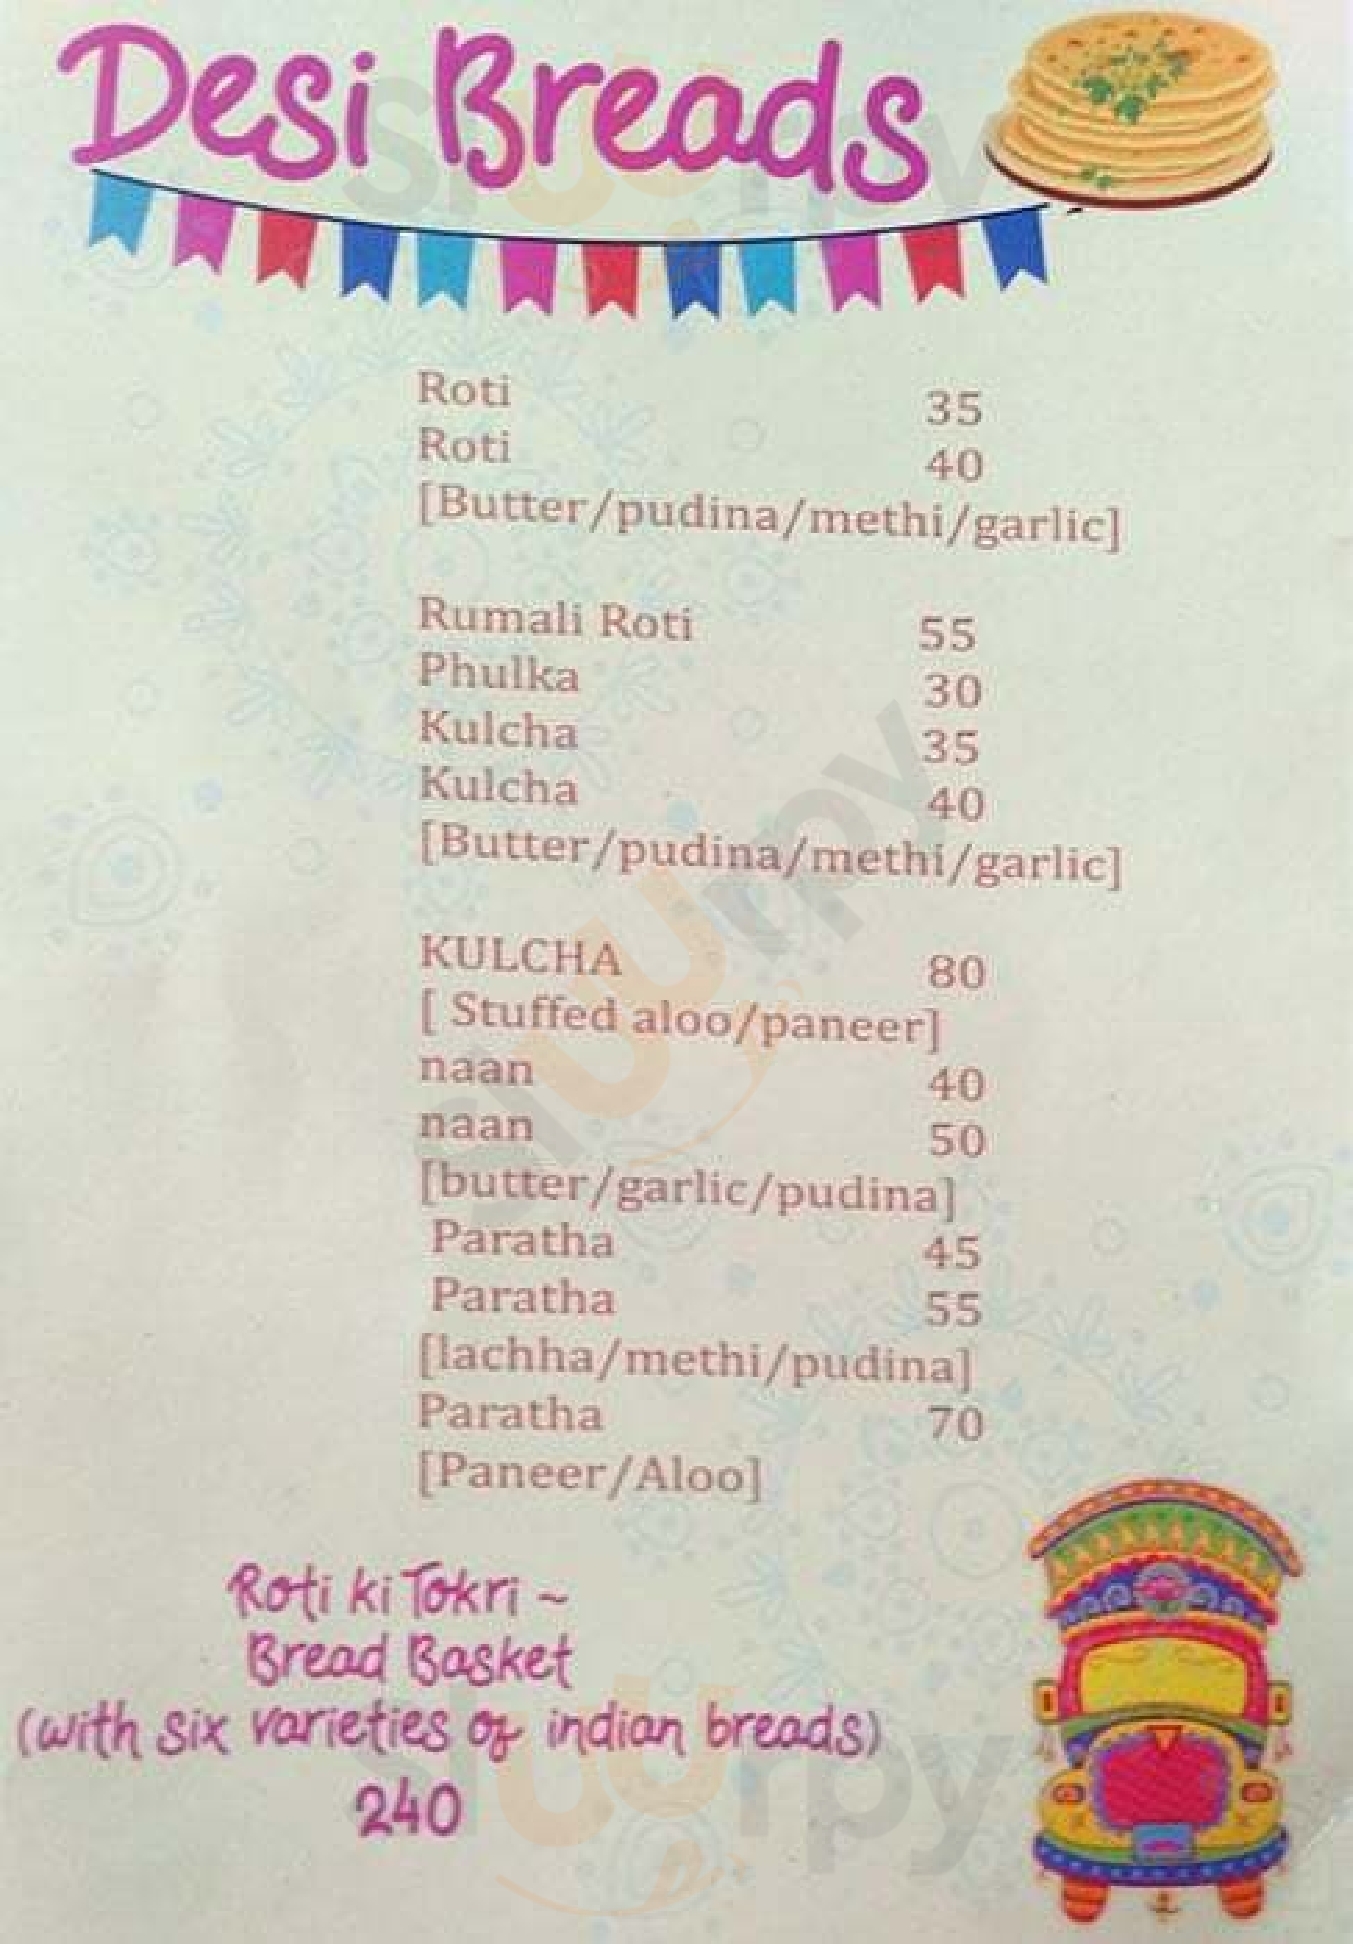 Desi Breads
Roti 35
Roti 40
[Butter/pudina/methi/garlic]
Rumali Roti 55
Phulka 30
Kulcha 35
Kulcha 40
[Butter/pudina/methi/garlic]
KULCHA 80
[ Stuffed aloo/paneer]
naan 40
naan 50
[butter/garlic/pudina]
Paratha 45
Paratha 55
[lachha/methi/pudina]
Paratha 70
[Paneer/Aloo]
Roti ki Tokri ~
Bread Basket
(with six varieties of indian breads)
240
sluurpy
sluurpy
sluurpy